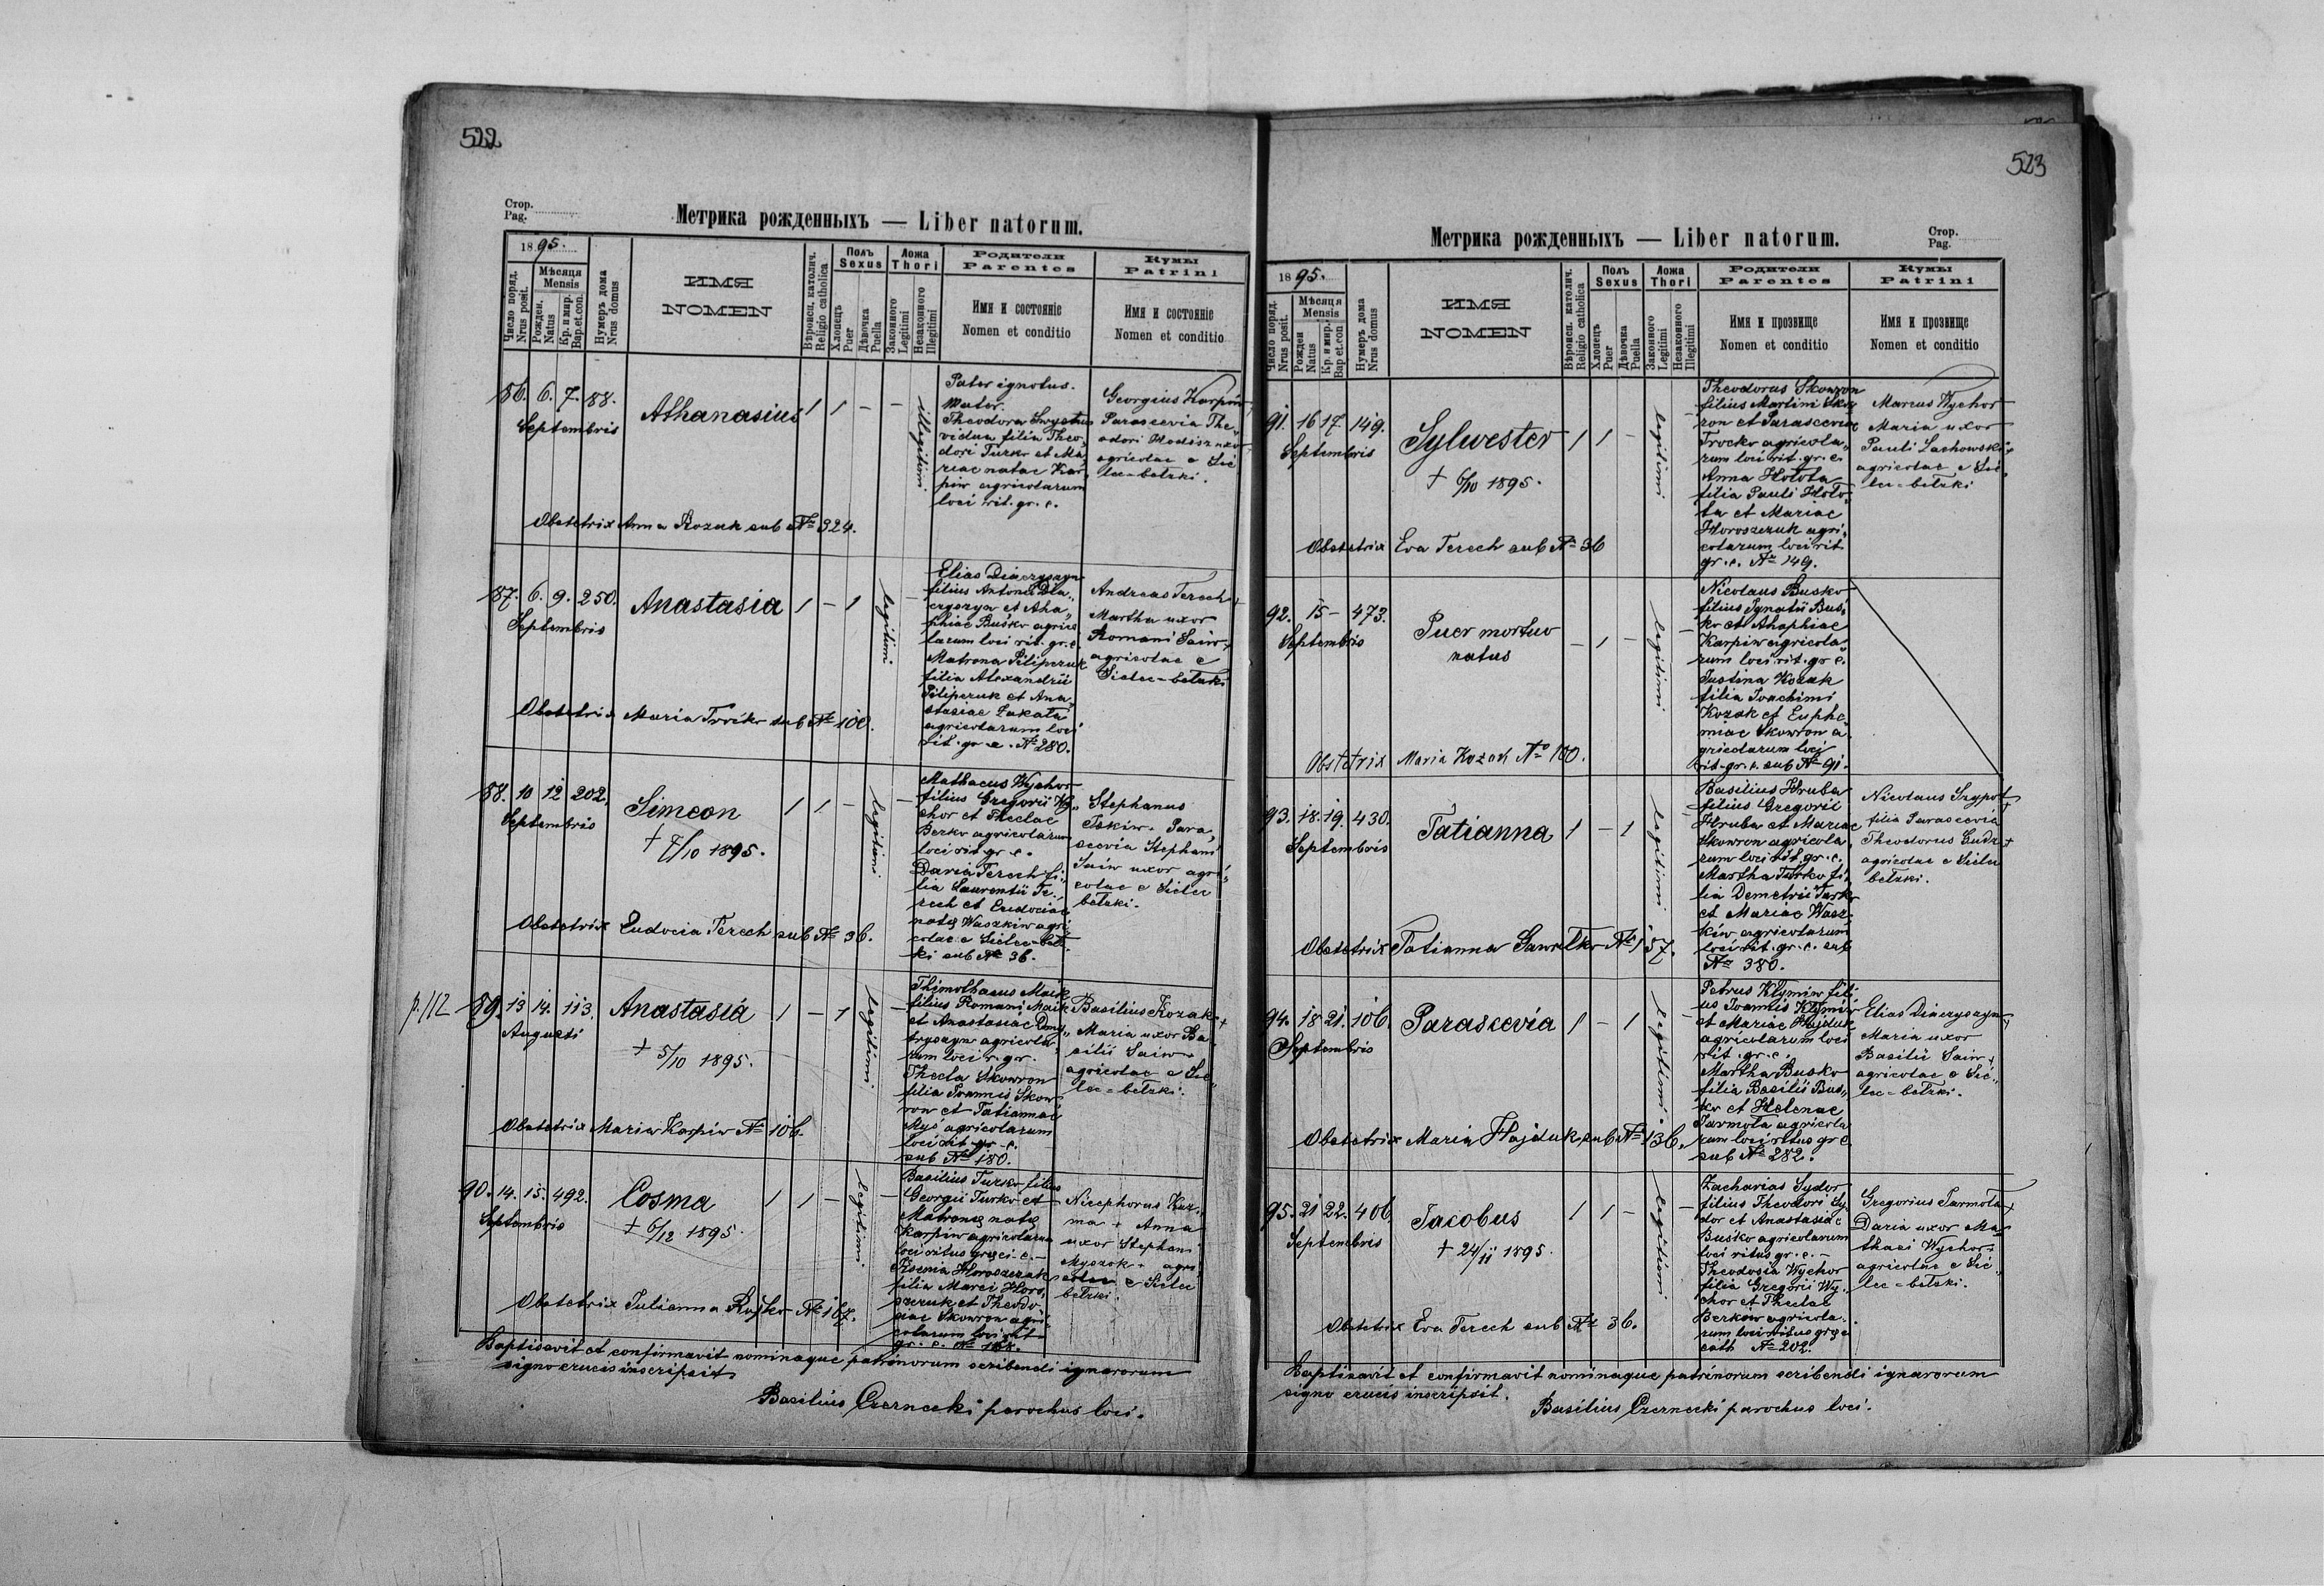 522
Стор.
Pag.
Метрика рожденныхъ — Liber natorum.
1895.
Число поряд.
Nrus posit.
Мѣсяця
Mensis
Рожден.
Natus
Кр. и мир.
Bap.et.con.
Нумеръ дома
Nrus domus
ИМЯ
NOMEN
Вѣроисп. католич.
Religio catholica
Полъ
Sexus
Хлопецъ
Puer
Дѣвочка
Puella
Ложа
Thori
Законного
Legitimi
Незаконного
Illegitimi
Родители
Parentes
Имя и состояніе
Nomen et conditio
Кумы
Patrini
Имя и состояніе
Nomen et conditio
86. 6. 7. 88.
Septembris
Athanasius
1 1 - -
illegitimi
Pater ignotus.
Mater.
Theodora
vidua filia Theo„
dori Turko et Ma„
riae natae Kar„
piw agricolarum
loci rit. gr. c.
Georgius Karpiw +
Parascevia The„
odori Hodisz uxor
agricolae e Sie„
lec-bełzki.
Obstetrix Anna Kozak sub № 324.
87. 6. 9. 250.
Septembris
Anastasia
1 - 1
legitimi
-
Elias Diaczyszyn
filius Antonii Dia„
czyszyn et Aha„
phiae Buśko agrico
larum loci rit. gr. c.
Matrona Pilipczuk
filia Alexandrii
Pilipczuk et Ana„
stasiae Łakata
agricolarum loci
rit. gr. c. № 280.
Andreas Terech +
Martha uxor
Romani Saiw +
agricolae e
Sielec-bełzki
Obstetrix Maria Troćko sub № 100.
88. 10 12 202.
Septembris
Simeon
† 7/10 1895.
1 1 -
legitimi
-
Mathaeus Wychor
filius Gregorii Wy„
chor et Theclae
Berko agricolarum
loci rit. gr. c.
Daria Terech fi„
lia Laurentii Te„
rech et Eudociae
natę Waszkiw agri
colae e Sielec-beł
ki sub № 36.
Stephanus
Iśkiw + Para„
scevia Stephani
Saiw uxor agri„
colae e Sielec
bełzki.
Obstetrix Eudocia Terech sub № 36.
p. 112
89. 13 14. 113.
Augusti
Anastasia
† 5/10 1895.
1 - 1
legitimi
-
Thimothaeus Maik
filius Romani Maik
et Anastasiae Dmy„
tryszyn agricola„
rum loci r. gr.
Thecla Skowron
filia Ioannis Skow„
ron et Tatiannae
Myś agricolarum
loci rit. gr. c.
sub № 180.
Basilius Kozak +
Maria uxor Ba„
silii Saiw +
agricolae e Sie„
lec-bełzki.
Obstetrix Maria Karpiw № 106.
90. 14. 15. 492.
Septembris
Cosma
† 6/12 1895.
1 1 -
legitimi
-
Basilius Turko filius
Georgii Turko et
Matronę natę
Karpiw agricolarum
loci ritus gręci c. —
Xsenia Horoszczuk
filia Marci Horo„
szczuk et Theodo„
siae Skowron agri„
colarum loci rit.
gr. c. № 168.
Nicephorus Kuz„
ma + Anna
uxor Stephani
Myszok + agri
colae e Sielec
bełzki.
Obstetrix Julianna Rojko № 167.
Baptisavit et confirmavit nominaque patrinorum scribendi ignarorum
signo crucis inscripsit
Basilius Czernecki parochus loci.
523
Метрика рожденныхъ — Liber natorum.
Стор.
Pag.
1895.
Число поряд.
Nrus posit.
Мѣсяця
Mensis
Рожден
Natus
Кр. и мир.
Bap et.con
Нумеръ дома
Nrus domus
ИМЯ
NOMEN
Вѣроисп. католич.
Religio catholica
Полъ
Sexus
Хлопецъ
Puer
Дѣвочка
Puella
Ложа
Thori
Законного
Legitimi
Незаконного
Illegitimi
Родители
Parentes
Имя и прозвище
Nomen et conditio
Кумы
Patrini
Имя и прозвище
Nomen et conditio
91. 16 17. 149.
Septembris
Sylwester
† 6/10 1895.
1 1 -
legitimi
-
Theodorus Skowron
filius Martini Skow
ron et Parasceviae
Trocko agricola„
rum loci rit. gr. c.
Anna Hołota
filia Pauli Hoło„
ta et Mariae
Horoszczuk agri„
colarum loci rit
gr. c. № 149.
Marcus Wychor
Maria uxor
Pauli Lachowski +
agricolae e Sie„
lec-bełzki
Obstetrix Eva Terech sub № 36
92. 15 - 473.
Septembris
Puer mortuo
natus
- 1 -
legitimi
-
Nicolaus Busko
filius Ignatii Bus„
ko et Ahaphiae
Karpiw agricola„
rum loci rit. gr c.
Justina Kozak
filia Joachimi
Kozak et Euphe„
miae Skowron a„
gricolarum loci
rit. gr. c. sub № 91.
Obstetrix Maria Kozak № 100.
93. 18. 19. 430.
Septembris
Tatianna
1 - 1
legitimi
-
Basilius Hruba
filius Gregorii
Hruba et Mariae
Skowron agricola„
rum loci rit. gr. c.
Martha Turko fi„
lia Demetrii Turko
et Mariae Wasz„
kiw agricolarum
loci rit. gr. c. sub
№ 380.
Nicolaus Szypot +
filia Parascevia
Theodorus Gudz +
agricolae e Sielec
bełzki.
Obstetrix Tatianna Gawrylko № 157.
94. 18 21. 106.
Septembris
Parascevia
1 - 1
legitimi
-
Petrus Klymiw fili„
us Ioannis Klymiw
et Mariae Hajduk
agricolarum loci
rit. gr. c.
Martha Busko
filia Basilii Bus„
ko et Helenae
Jarmoła agricola
rum loci ritus gr c.
sub № 282.
Elias Diaczyszyn +
Maria uxor
Basilii Saiw +
agricolae e Sie„
lec-bełzki.
Obstetrix Maria Hajduk sub № 136.
95. 21 22. 406.
Septembris
Jacobus
† 24/11 1895.
1 1 -
legitimi
-
Zacharias Sydor
filius Theodori Sy
dor et Anastasiae
Busko agricolarum
loci ritus gr. c. —
Theodosia Wychor
filia Gregorii Wy„
chor et Theclae
Berkow agricola„
rum loci ritus gręc
cath № 202.
Gregorius Jarmoła +
Daria uxor Ma„
thaei Wychor +
agricolae e Sie„
lec-bełzki.
Obstetrix Eva Terech sub № 36.
Baptisavit et confirmavit nominaque patrinorum scribendi ignarorum
signo crucis inscripsit.
Basilius Czernecki parochus loci.